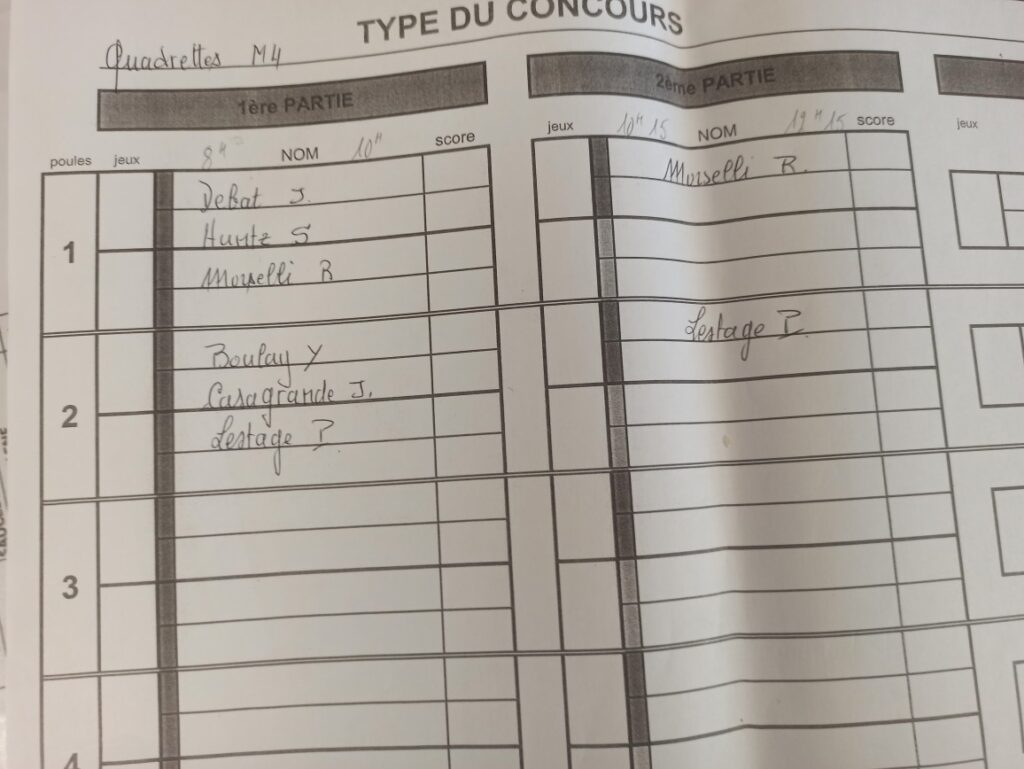 TYPE DU CONCOURS
Quadrettes M4
1ère PARTIE
2ème PARTIE
poules jeux 8H NOM 10H score
jeux 10H 15 NOM 12H 15 score
jeux
1
Debat J.
Huntz S
Morselli R
Morselli R.
2
Boulay Y
Casagrande J.
Lestage P.
Lestage P.
3
4